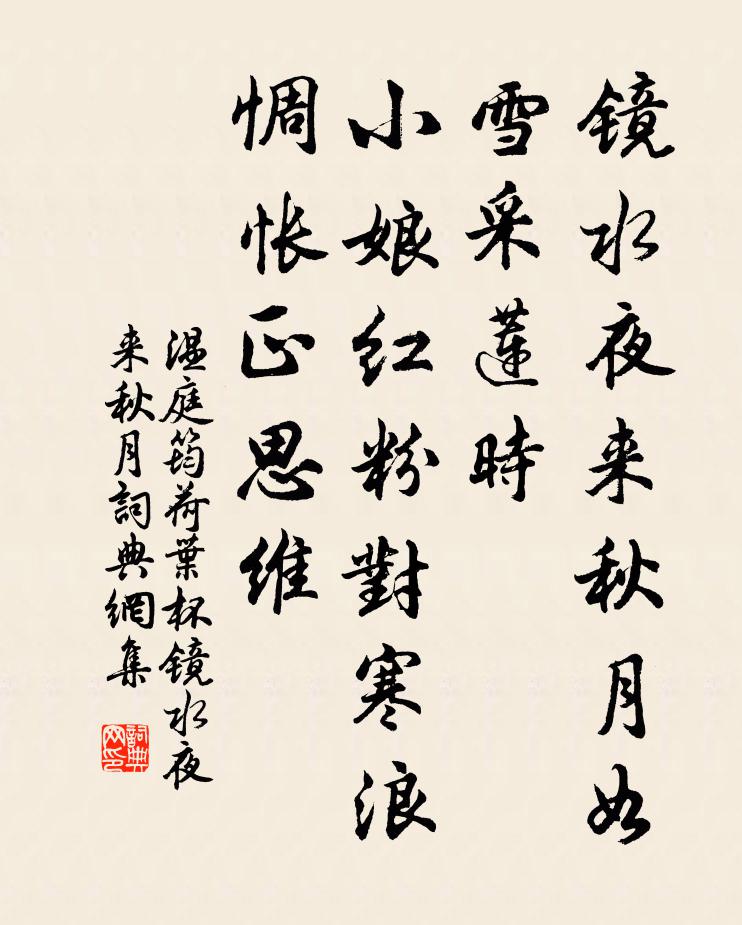 镜水夜来秋月如
雪采蓮時
小娘红粉對寒浪
惆怅正思维
温庭筠荷葉杯镜水夜
来秋月詞典網集
詞典
网印